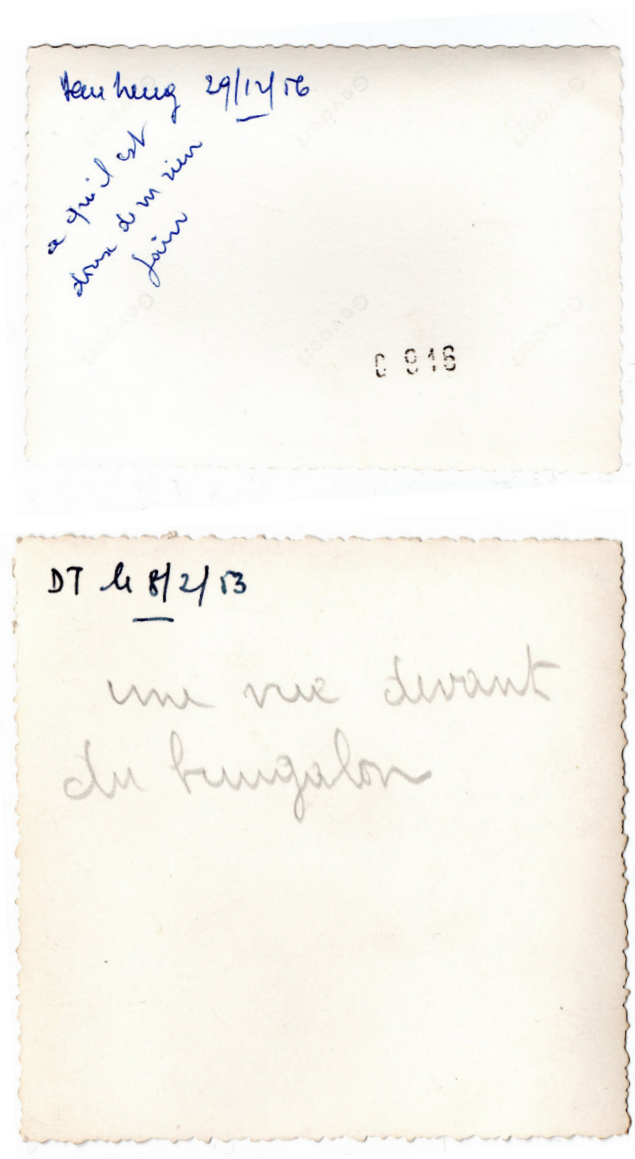 29/12/56
a qu'il est
doux de ne rien
faire
0 916
DT le 8/2/53
une vue devant
du bungalow